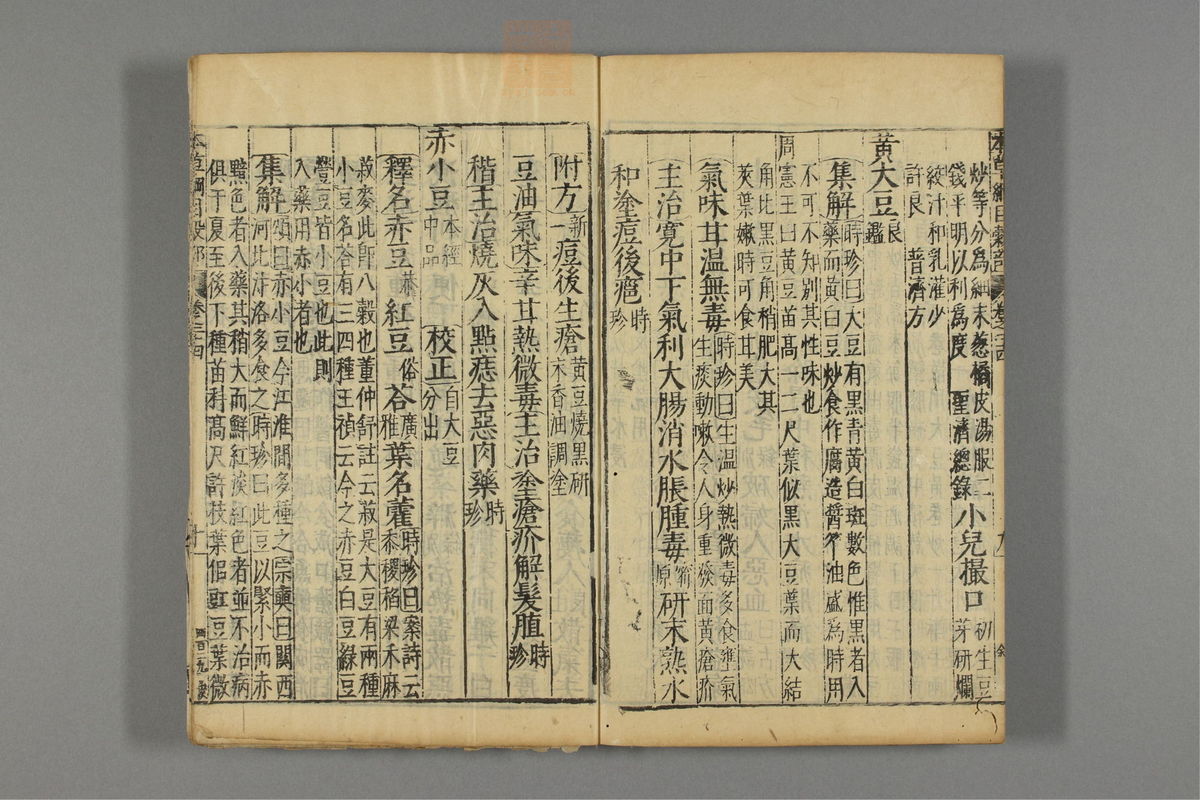 炒等分為細末葱橘皮湯服二
錢平明以利為度 聖濟總錄
小兒撮口
初生豆
芽研爛
絞汁和乳灌少
許良 普濟方
黃大豆
食鑑
集解
時珍曰大豆有黑青黃白斑數色惟黑者入
藥而黃白豆炒食作腐造醬笮油盛為時用
不可不知別其性味也
周憲王曰黃豆苗高一二尺葉似黑大豆葉而大結
角比黑豆角稍肥大其
莢葉嫩時可食甘美
氣味甘溫無毒
時珍曰生溫炒熱微毒多食壅氣
生痰動嗽令人身重發面黃瘡疥
主治寬中下氣利大腸消水脹腫毒
甯原
研末熟水
和塗痘後癰
時珍
附方
新一
痘後生瘡
黃豆燒黑研
末香油調塗
豆油氣味辛甘熱微毒主治塗瘡疥解髮䐈
時珍
稭主治燒灰入點痣去惡肉藥
時珍
赤小豆
本經
中品
校正
自大豆
分出
釋名赤豆
恭
紅豆
俗
荅
廣雅
葉名藿
時珍曰案詩云
黍稷稻粱禾麻
菽麥此即八穀也董仲舒註云菽是大豆有兩種
小豆名荅有三四種王禎云今之赤豆白豆綠豆
䝁豆皆小豆也此則
入藥用赤小者也
集解
頌曰赤小豆今江淮間多種之宗奭曰關西
河北汴洛多食之時珍曰此豆以緊小而赤
黯色者入藥其稍大而鮮紅淡紅色者並不治病
俱于夏至後下種苗科高尺許枝葉似豇豆葉微